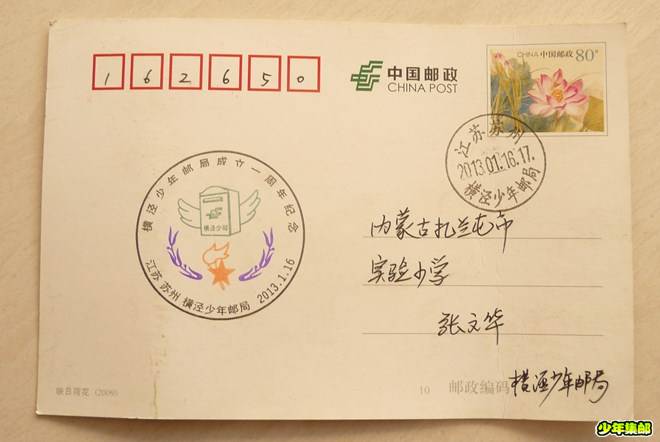 162650
中国邮政
CHINA POST
CHINA 中国邮政 80分
江苏苏州
2013.01.16.17.
横泾少年邮局
横泾少年邮局成立一周年纪念
横泾少邮
江苏 苏州 横泾少年邮局 2013.1.16
内蒙古扎兰屯市
实验小学
张文华
映日荷花 (2009)
10
邮政编码 横泾少年邮局
少年集邮